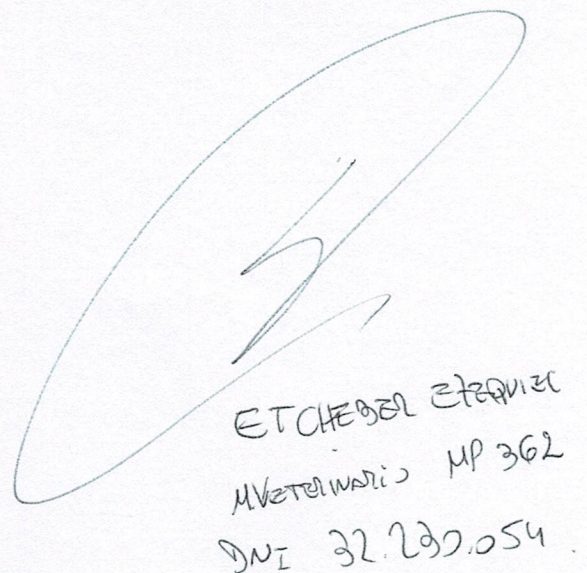 ETCHEBER EZEQUIEL
MVETERINARIO MP 362
DNI 32.230.054